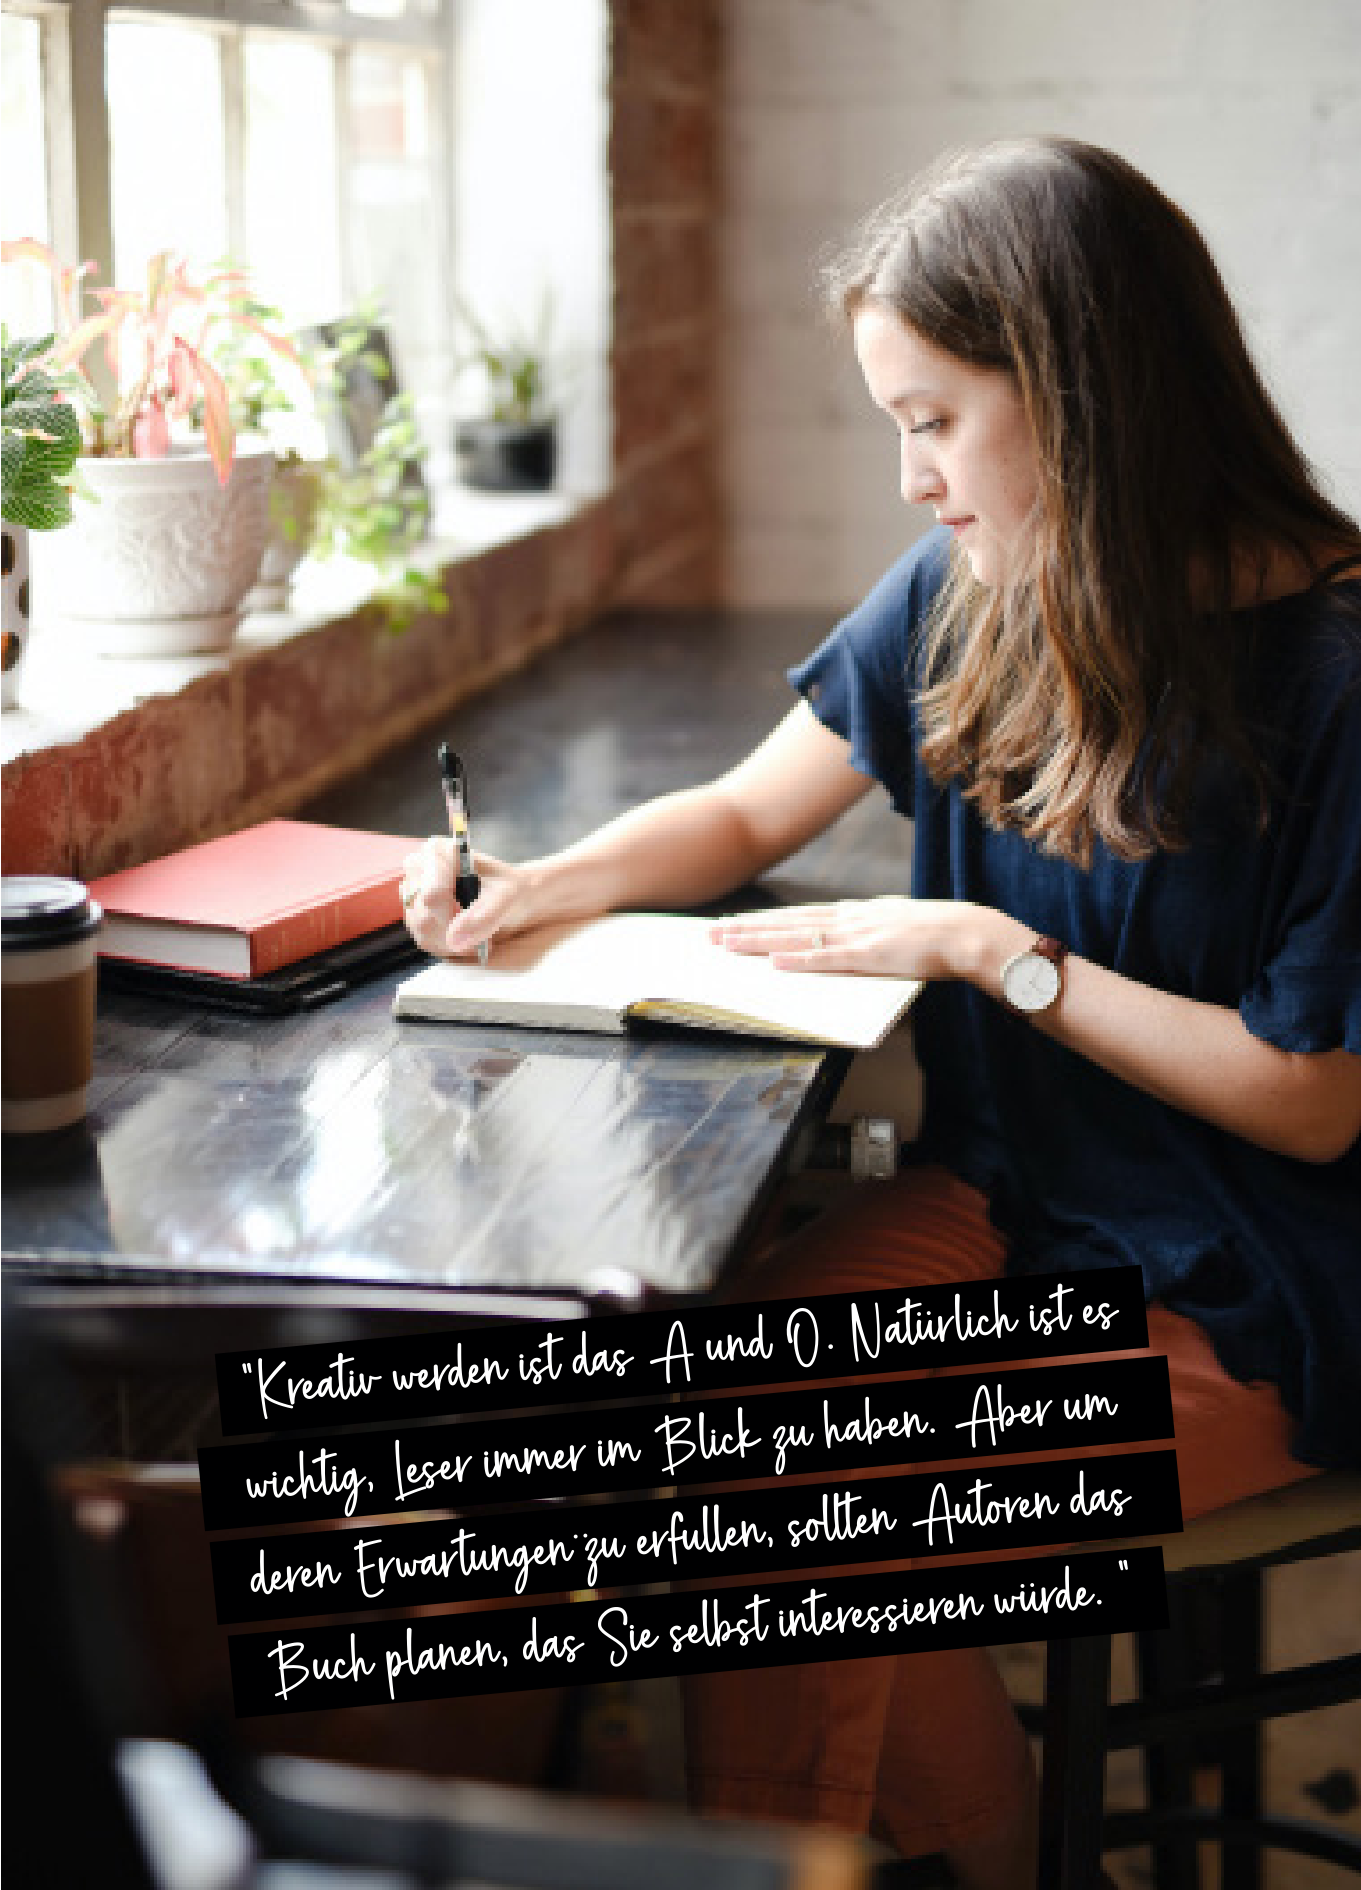 "Kreativ werden ist das A und O. Natürlich ist es
wichtig, Leser immer im Blick zu haben. Aber um
deren Erwartungen ̈zu erfullen, sollten Autoren das
Buch planen, das Sie selbst interessieren würde. "